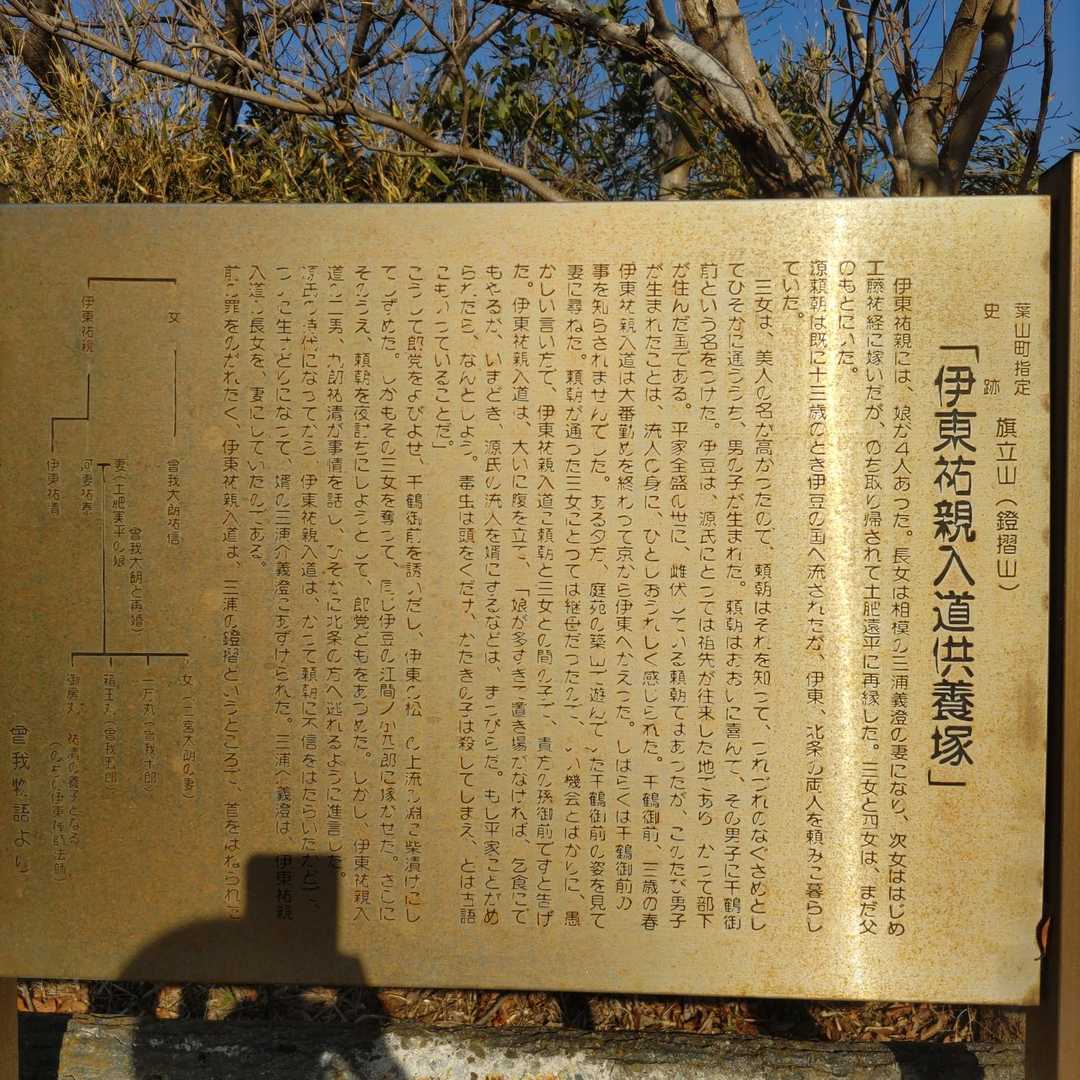 葉山町指定
史跡
旗立山（鐙摺山）
「伊東祐親入道供養塚」
伊東祐親には、娘が４人あった。長女は相模の三浦義澄の妻になり、次女ははじめ
工藤祐経に嫁いだが、のち取り帰されて土肥遠平に再縁した。三女と四女は、まだ父
のもとにいた。
源頼朝は既に十三歳のとき伊豆の国へ流されたが、伊東、北条の両人を頼みに暮らし
ていた。
三女は、美人の名が高かったので、頼朝はそれを知って、つれづれのなぐさめとし
てひそかに通ううち、男の子が生まれた。頼朝はおおいに喜んで、その男子に千鶴御
前という名をつけた。伊豆は、源氏にとっては祖先が往来した地であり、かつて部下
が住んだ国である。平家全盛の世に、雌伏している頼朝ではあったが、このたび男子
が生まれたことは、流人の身に、ひとしおうれしく感じられた。千鶴御前、三歳の春
伊東祐親入道は大番勤めを終わって京から伊東へかえった。しばらくは千鶴御前の
事を知らされませんでした。ある夕方、庭苑の築山で遊んでいた千鶴御前の姿を見て
妻に尋ねた。頼朝が通った三女にとっては継母だったので、いい機会とばかりに、愚
かしい言い方で、伊東祐親入道に頼朝と三女との間の子で、貴方の孫御前ですと告げ
た。伊東祐親入道は、大いに腹を立て、「娘が多すぎて置き場がなければ、乞食にで
もやるが、いまどき、源氏の流人を婿にするなどは、まっぴらだ。もし平家にとがめ
られたら、なんとしよう。毒虫は頭をくだけ、かたきの子は殺してしまえ、とは古語
にもいっていることだ」
こうして郎党をよびよせ、千鶴御前を誘いだし、伊東の松 の上流の淵に柴漬けにし
てしずめた。しかもその三女を奪って、同じ伊豆の江間ノ小四郎に嫁がせた。さらに
そのうえ、頼朝を夜討ちにしようとして、郎党どもをあつめた。しかし、伊東祐親入
道の二男、九郎祐清が事情を話し、ひそかに北条の方へ逃れるように進言した。
源氏の時代になってから、伊東祐親入道は、かつて頼朝に不信をはたらいたかどで、
ついに生けどりになって、婿の三浦介義澄にあずけられた。三浦介義澄は、伊東祐親
入道の長女を、妻にしていたのである。
前の罪をのがれたく、伊東祐親入道は、三浦の鐙摺というところで、首をはねられた
女
伊東祐親
曾我大朗祐信
妻（土肥実平の娘
曾我大朗と再婚）
河妻祐泰
伊東祐清
女（二宮太朗の妻）
一万丸（曾我十郎）
箱王丸（曾我五郎）
御房丸
祐清の養子となる
曾我物語より